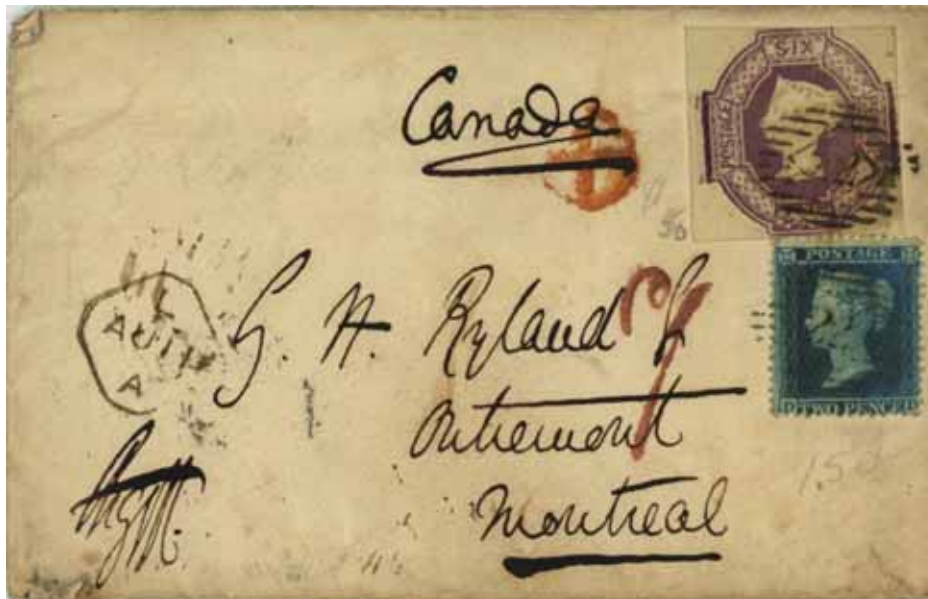 SIX
POSTAGE
Canada
POSTAGE
TWO PENCE
G. H. Ryland
Outremont
Montreal
A
1.50